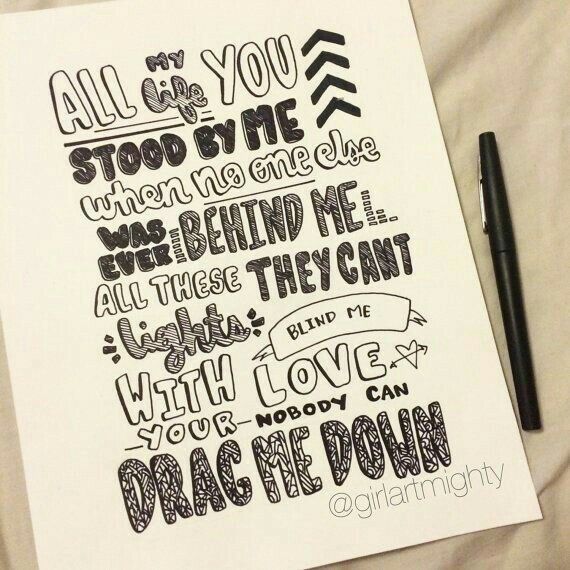 ALL MY life YOU
STOOD BY ME
when no one else
WAS EVER BEHIND ME
ALL THESE THEY CANT
lights BLIND ME
WITH LOVE
YOUR NOBODY CAN
DRAG ME DOWN
@girlartmighty